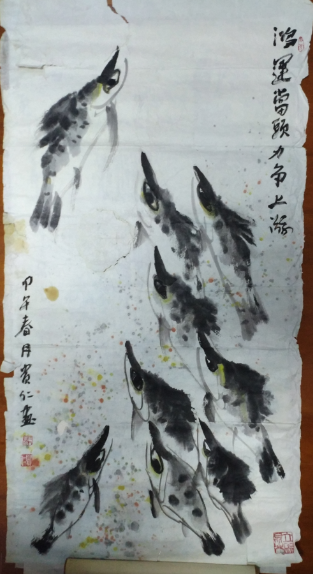 鸿運當頭力争上游
甲午春月贵仁画